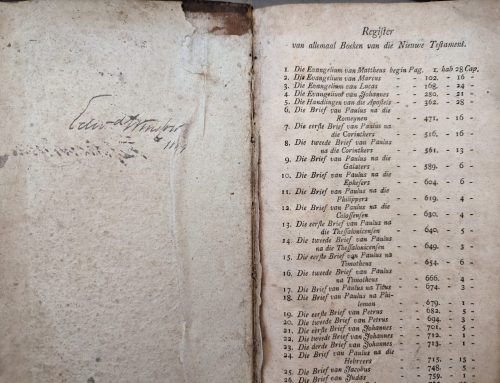 Regiſter
van allemaal Boeken van die Nieuwe Teſtament.
1. Die Evangelium van Mattheus begin Pag. 1. hab 28 Cap.
2. Die Evangelium van Marcus - 102. - 16 -
3. Die Evangelium van Lucas - 168. - 24 -
4. Die Evangelium van Johannes - 280. - 21 -
5. Die Handlingen van die Apoſtels - 362. - 28 -
6. Die Brief van Paulus na die
Romeynen - - 471. - 16 -
7. Die eerſte Brief van Paulus na
die Corinthers - - 516. - 16 -
8. Die tweede Brief van Paulus
na die Corinthers - - 561. - 13 -
9. Die Brief van Paulus na die
Galaters - - 589. - 6 -
10. Die Brief van Paulus na die
Epheſers - - 604. - 6 -
11. Die Brief van Paulus na die
Philippers - - 619. - 4 -
12. Die Brief van Paulus na die
Coloſſenſen - - 630. - 4 -
13. Die eerſte Brief van Paulus na
die Theſſalonicenſen - - 640. - 5 -
14. Die tweede Brief van Paulus
na die Theſſalonicenſen - - 649. - 3 -
15. Die eerſte Brief van Paulus na
Timotheus - - 654. - 6 -
16. Die tweede Brief van Paulus na
Timotheus - - 666. - 4 -
17. Die Brief van Paulus na Titus - 674. - 3 -
18. Die Brief van Paulus na Philemon
- - 679. - 1 -
19. Die eerſte Brief van Petrus - 682. - 5 -
20. Die tweede Brief van Petrus - 694. - 3 -
21. Die eerſte Brief van Johannes - 701. - 5 -
22. Die tweede Brief van Johannes - 712. - 1 -
23. Die derde Brief van Johannes - 713. - 1 -
24. Die Brief van Paulus na die
Hebreers - - 715. - 13 -
25. Die Brief van Jacobus - 748. - 5 -
26. Die Brief van Judas - 759. - 1